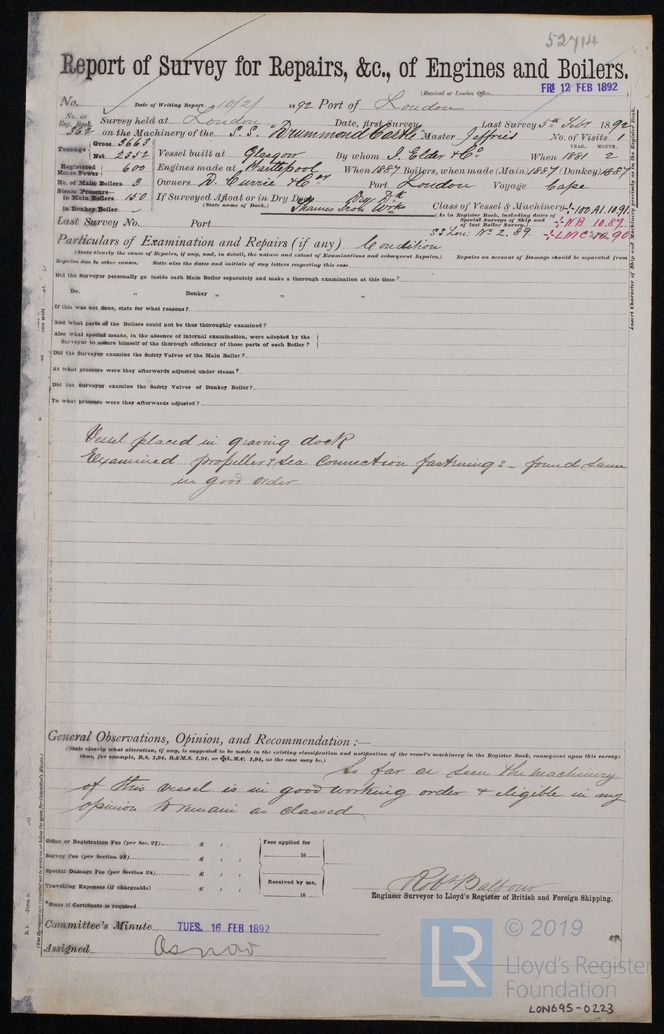 52714
Report of Survey for Repairs, &c., of Engines and Boilers.
(Received at London Office FRI 12 FEB 1892
No. Date of Writing Report 10/2/ 1892 Port of London
No. in Reg. Book. Survey held at London Date, first Survey Last Survey 5th Feby 1892
362 on the Machinery of the S.S. "Drummond Castle" Master Jeffries No. of Visits 1
Tonnage Gross 3663 YEAR. MONTH.
Net 2352 Vessel built at Glasgow By whom J. Elder & Co. When 1881 2
Registered Horse Power 600 Engines made at Hartlepool When 1887 Boilers, when made (Main) 1887 (Donkey) 1887
No. of Main Boilers 3 Owners D. Currie & Co Port London Voyage Cape
Steam Pressure in Main Boilers 150 If Surveyed Afloat or in Dry Dock Dry Dk
in Donkey Boiler. (State name of Dock.) Thames Iron Works Class of Vessel & Machinery 100A1. 10.91
(As in Register Book, including dates of Special Surveys of Ship and of last Boiler Survey.) NB 10.87
Last Survey No. Port SS Lon: No 2. 89. LMC 90
Particulars of Examination and Repairs (if any) Condition
(State clearly the cause of Repairs, if any, and, in detail, the nature and extent of Examinations and subsequent Repairs.) Repairs on account of Damage should be separated from
Repairs due to other causes. State also the dates and initials of any letters respecting this case
Did the Surveyor personally go inside each Main Boiler separately and make a thorough examination at this time?
Do. „ Donkey „ „ „
If this was not done, state for what reasons?
And what parts of the Boilers could not be thus thoroughly examined?
Also what special means, in the absence of internal examination, were adopted by the
Surveyor to assure himself of the thorough efficiency of those parts of each Boiler?
Did the Surveyor examine the Safety Valves of the Main Boiler?
At what pressure were they afterwards adjusted under steam?
Did the Surveyor examine the Safety Valves of Donkey Boiler?
To what pressure were they afterwards adjusted?
Vessel placed in graving dock
Examined propeller & sea connection fastenings - found same
in good order
General Observations, Opinion, and Recommendation:—
(State clearly what alteration, if any, is suggested to be made in the existing classification and notification of the vessel's machinery in the Register Book, consequent upon this survey;
thus, for example, B.S. 1,91, B.&M.S. 1,91, or L.M.C. 1,91, as the case may be.)
So far as seen the machinery
of this vessel is in good working order & eligible in my
opinion to remain as classed
Office or Registration Fee (per Sec. 27) £ : : Fees applied for
Survey Fee (per Section 28) £ : : 18
Special Damage Fee (per Section 28) £ : : Received by me,
Travelling Expenses (if chargeable) £ : : 18
*State if Certificate is required
Robt Balfour
Engineer Surveyor to Lloyd's Register of British and Foreign Shipping.
Committee's Minute TUES. 16 FEB 1892
Assigned As now
LR © 2019
Lloyd's Register
Foundation
LON695-0223
Insert Character of Ship and Machinery precisely as in the Register Book.